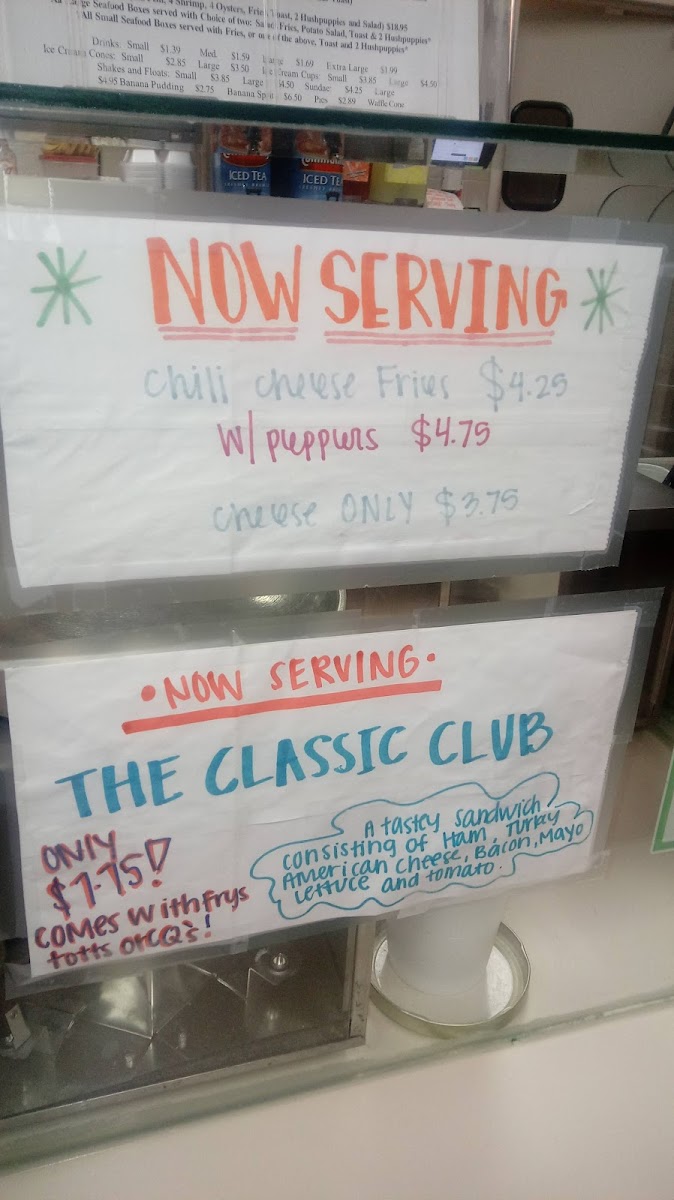 4 Shrimp, 4 Oysters, Fries, Toast, 2 Hushpuppies and Salad) $18.95
Large Seafood Boxes served with Choice of two: Salad, Fries, Potato Salad, Toast & 2 Hushpuppies*
*All Small Seafood Boxes served with Fries, or one of the above, Toast and 2 Hushpuppies*
Drinks: Small $1.39 Med. $1.59 Large $1.69 Extra Large $1.99
Ice Cream Cones: Small $2.85 Large $3.50 Ice Cream Cups: Small $3.85 Large $4.50
Shakes and Floats: Small $3.85 Large $4.50 Sundae $4.25 Large
$4.95 Banana Pudding $2.75 Banana Split $6.50 Pies $2.89 Waffle Cone
ICED TEA
ICED TE
NOW SERVING
chili cheese Fries $4.25
W/ peppers $4.75
cheese ONLY $3.75
•NOW SERVING•
THE CLASSIC CLUB
A tastey sandwich
consisting of Ham, Turkey
American cheese, Bacon, Mayo
Lettuce and tomato.
ONLY
$7.75!
COMES With frys
totts or CQ's!